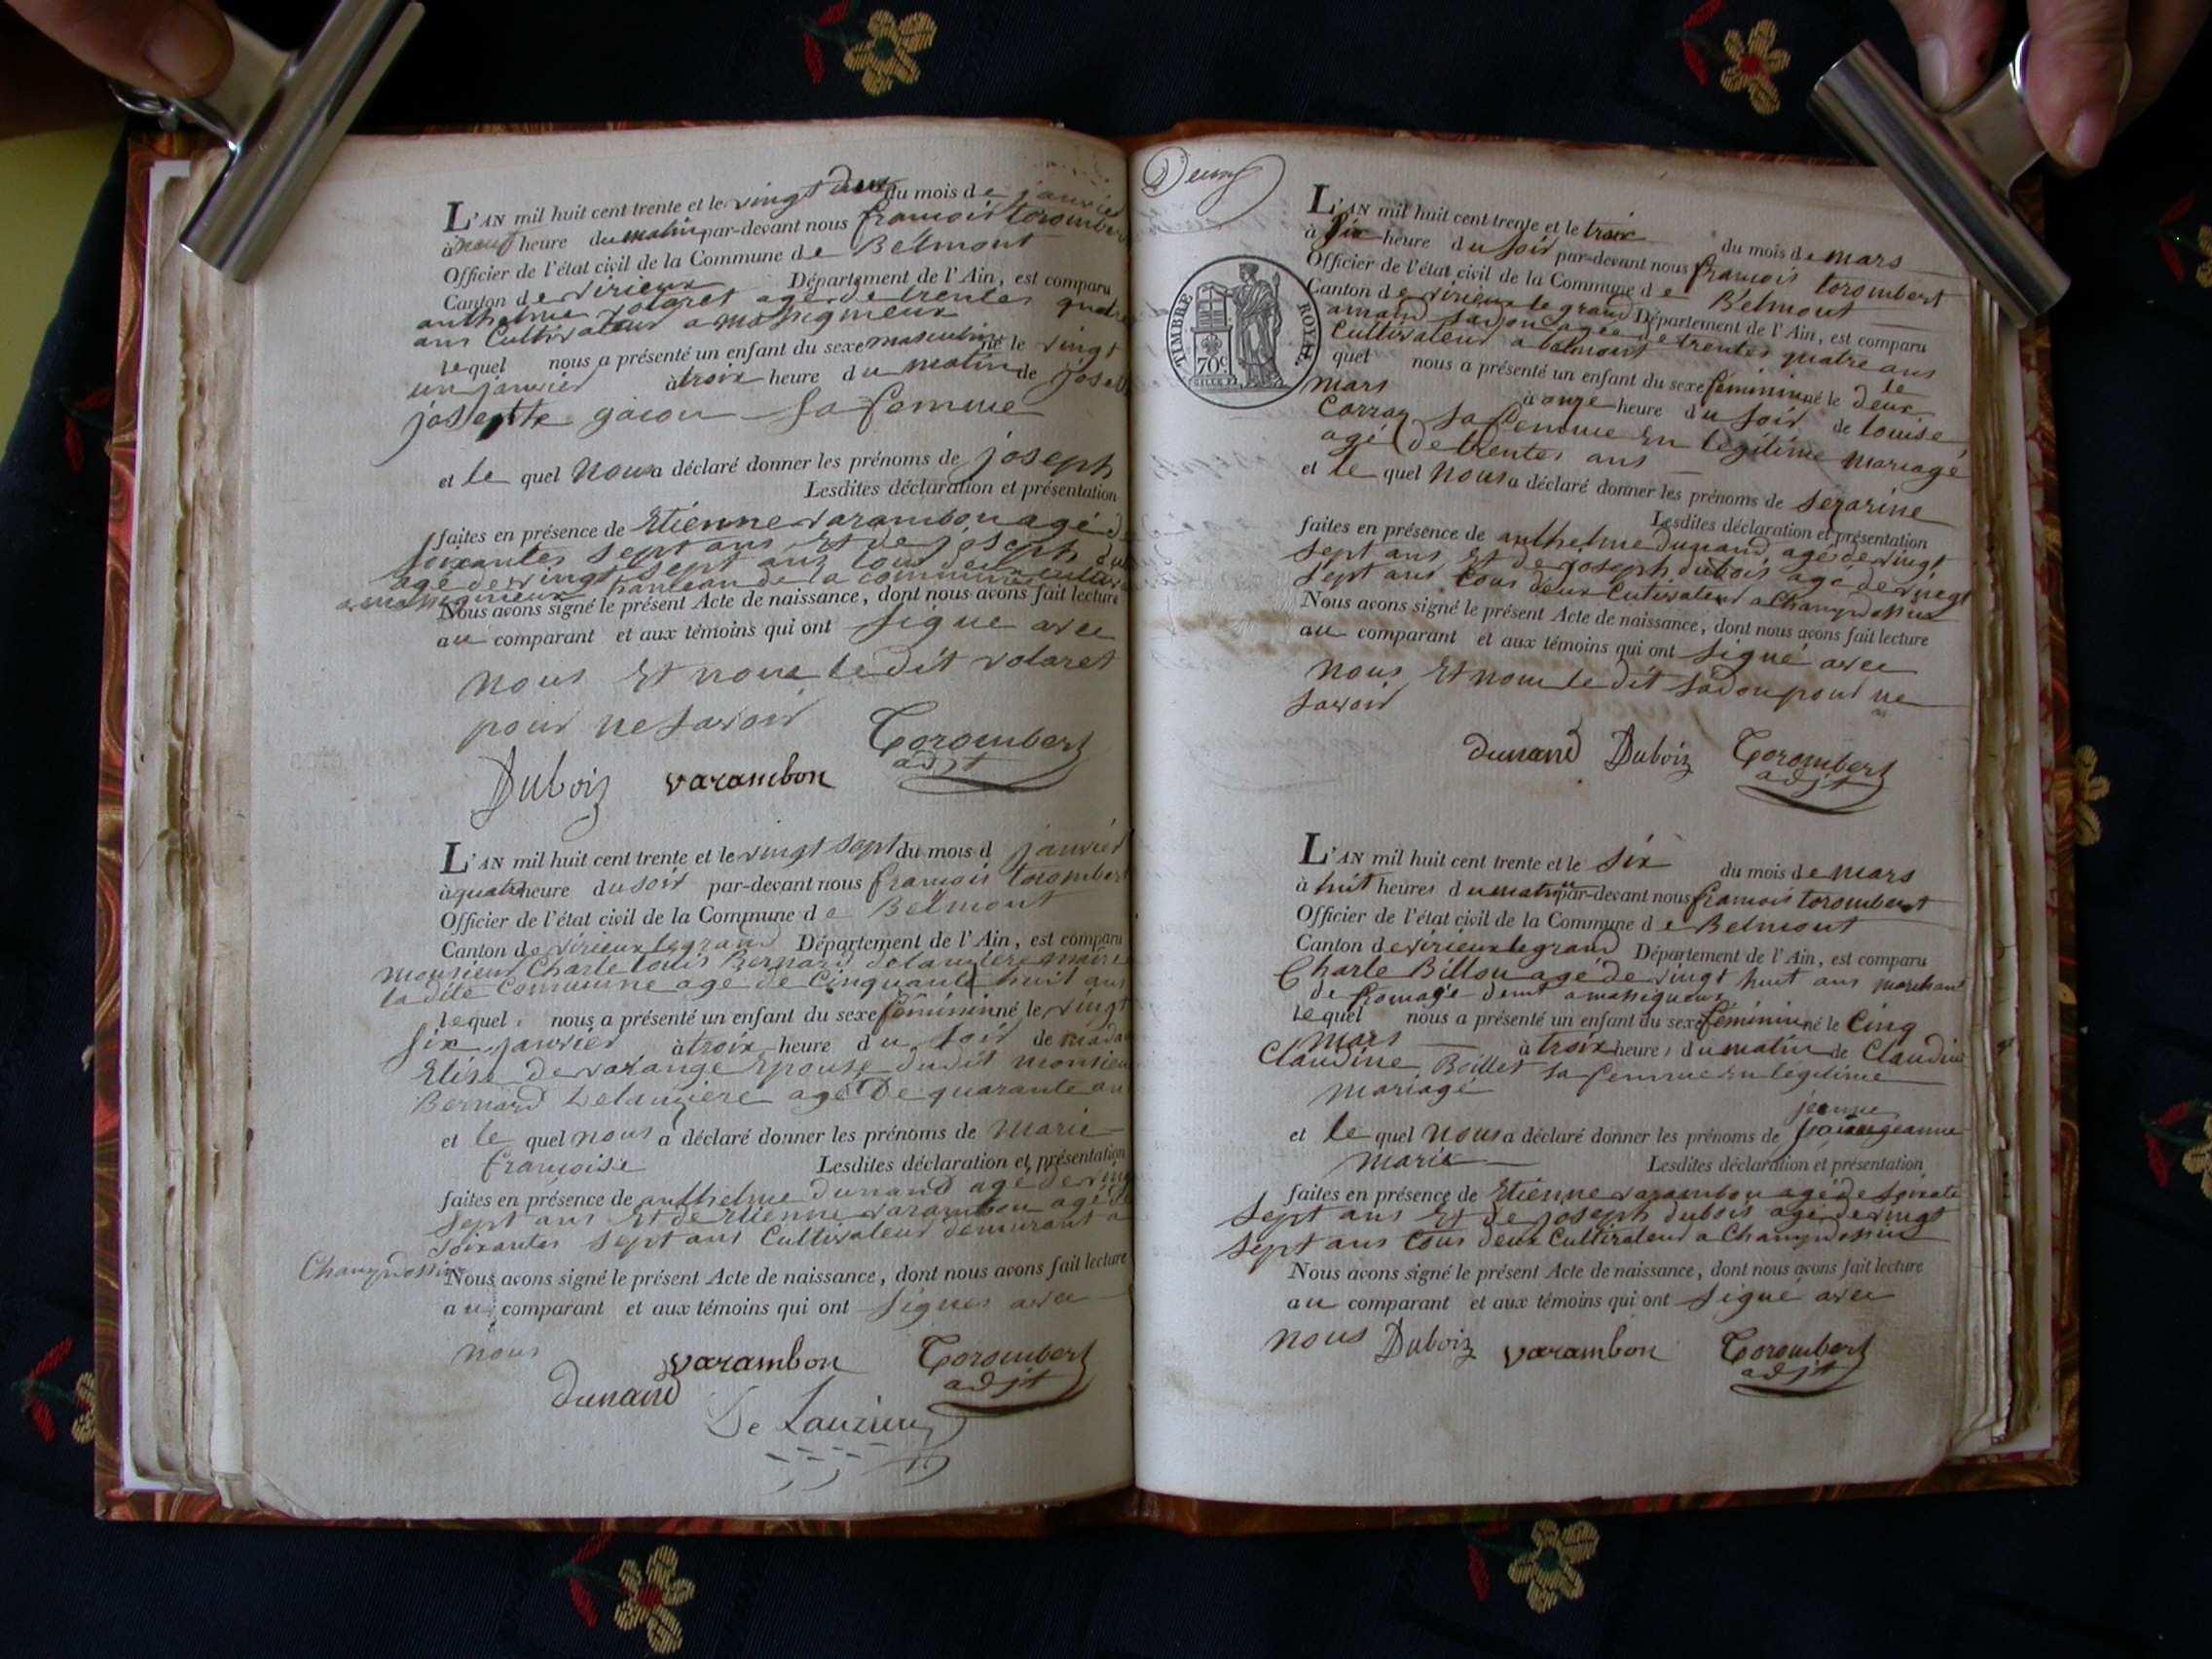 L'AN mil huit cent trente et le vingt deux du mois de janvier
à neuf heure du matin par-devant nous francois torombert
Officier de l'état civil de la Commune de Belmont
Canton de virieux Département de l'Ain, est comparu
anthelme volaret agé de trentes quatre
ans Cultivateur a massignieux
lequel nous a présenté un enfant du sexe masculin né le vingt
un janvier à troix heure du matin de
josephte gacon sa femme
et le quel nous a déclaré donner les prénoms de joseph
Lesdites déclaration et présentation
faites en présence de Etienne varambon agé d
soixantes sept ans Et de joseph du
agé de vingt sept ans tous deux
a massignieux de la commune
Nous avons signé le présent Acte de naissance, dont nous avons fait lecture
au comparant et aux témoins qui ont signe avec
nous Et none le dit volaret
pour ne savoir
Torombert
adjt
Duboiz varambon
L'AN mil huit cent trente et le vingt sept du mois d janvier
à quatre heure du soir par-devant nous francois torombert
Officier de l'état civil de la Commune de Belmont
Canton de virieux legrand Département de l'Ain, est comparu
monsieur Charle Louis Bernard delauziere maire
ladite Commune age de Cinquante huit ans
lequel nous a présenté un enfant du sexe féminin né le vingt
six janvier à troix heure du soir de
Elise de varange Epouse dudit monsieu
Bernard Delauziere agé De quarante an
et le quel nous a déclaré donner les prénoms de marie
francoise Lesdites déclaration et présentation
faites en présence de anthelme dunand age de ving
sept ans Et de Etienne varambon agé de
soixantes sept ans Cultivateur demurant a
Champdossin
Nous avons signé le présent Acte de naissance, dont nous avons fait lecture
au comparant et aux témoins qui ont signer avec
nous
varambon Torombert
adjt
dunand
De Lauzier
Deux
TIMBRE ROYAL
70c
L'AN mil huit cent trente et le troix du mois de mars
à six heure du soir par-devant nous francois torombert
Officier de l'état civil de la Commune de Belmont
Canton de virieux le grand Département de l'Ain, est comparu
amand sadou agé de trentes quatre ans
Cultivateur a belmont le
quel nous a présenté un enfant du sexe féminin né le deux
mars à onze heure du soir de Louise
Carraz sa femme En legitime mariage
agé de trentes ans
et le quel nous a déclaré donner les prénoms de serarine
Lesdites déclaration et présentation
faites en présence de anthelme dunand agé de vingt
sept ans Et de joseph dubois agé de vingt
sept ans tous deux Cutivateur a Champdossin
Nous avons signé le présent Acte de naissance, dont nous avons fait lecture
au comparant et aux témoins qui ont signé avec
nous Et none le dit sadou pour ne
savoir
dunand Duboiz Torombert
adjt
L'AN mil huit cent trente et le six du mois de mars
à huit heures du matin par-devant nous francois torombert
Officier de l'état civil de la Commune de Belmont
Canton de virieux legrand Département de l'Ain, est comparu
Charle Billou agé de vingt huit ans marchand
de fromage demt a massigneux
lequel nous a présenté un enfant du sexe féminin né le Cinq
mars à troix heures du matin de Claudine
Claudine Boillet sa femme En legitime
mariage
jeanne
et le quel nous a déclaré donner les prénoms de
marie Lesdites déclaration et présentation
faites en présence de Etienne varambon agé de soixate
sept ans Et de joseph dubois agé de vingt
sept ans tous deux Cultivateur a Champdossin
Nous avons signé le présent Acte de naissance, dont nous avons fait lecture
au comparant et aux témoins qui ont signé avec
nous Duboiz varambon Torombert
adjt